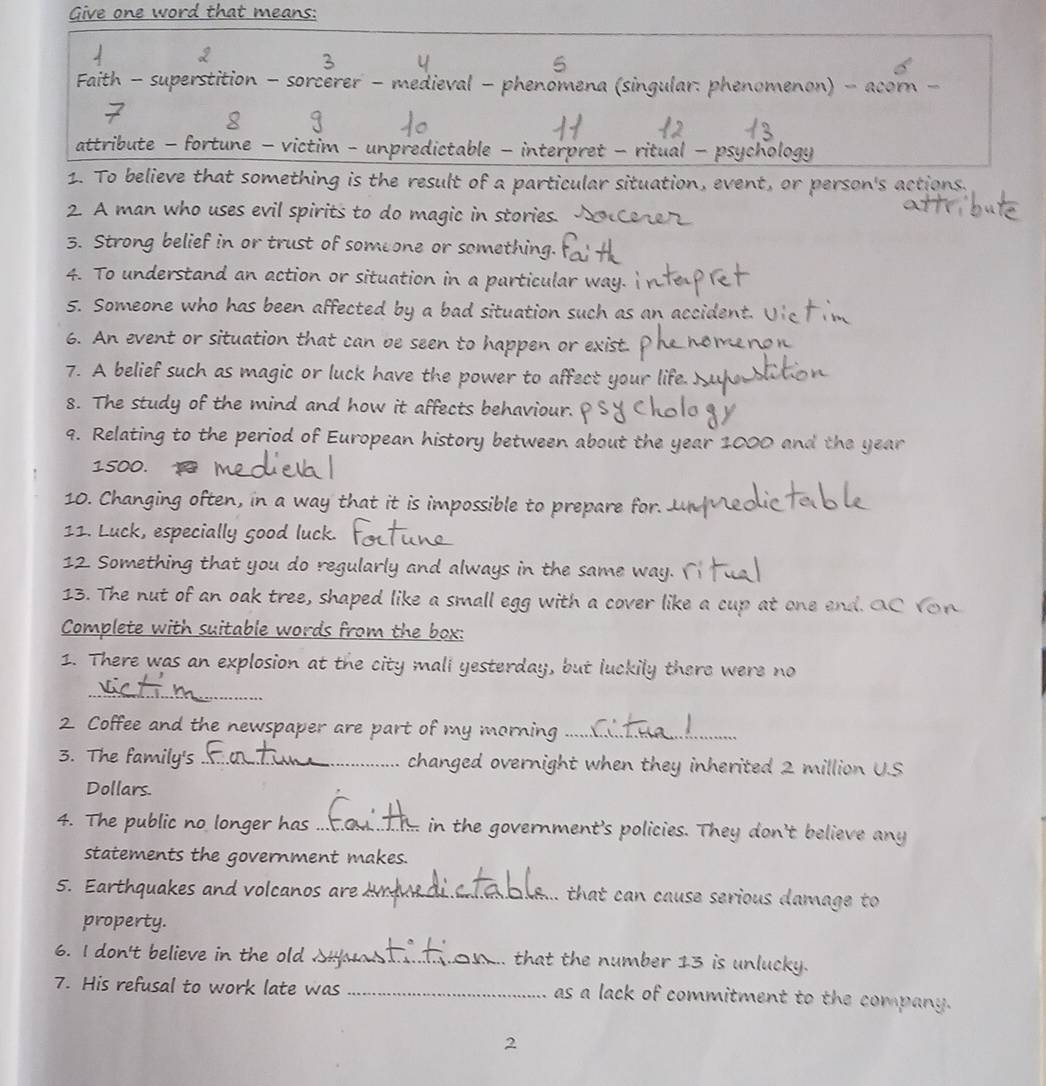 Give one word that means:
1 2 3 4 5 6
Faith - superstition - sorcerer - medieval - phenomena (singular: phenomenon) - acorn -
7 8 9 10 11 12 13
attribute - fortune - victim - unpredictable - interpret - ritual - psychology
1. To believe that something is the result of a particular situation, event, or person's actions. attribute
2. A man who uses evil spirits to do magic in stories. sorcerer
3. Strong belief in or trust of someone or something. Faith
4. To understand an action or situation in a particular way. interpret
5. Someone who has been affected by a bad situation such as an accident. Victim
6. An event or situation that can be seen to happen or exist. phenomenon
7. A belief such as magic or luck have the power to affect your life. superstition
8. The study of the mind and how it affects behaviour. psychology
9. Relating to the period of European history between about the year 1000 and the year
1500. medieval
10. Changing often, in a way that it is impossible to prepare for. unpredictable
11. Luck, especially good luck. Fortune
12. Something that you do regularly and always in the same way. ritual
13. The nut of an oak tree, shaped like a small egg with a cover like a cup at one end. acron
Complete with suitable words from the box:
1. There was an explosion at the city mall yesterday, but luckily there were no
victim
2. Coffee and the newspaper are part of my morning ritual
3. The family's Fortune changed overnight when they inherited 2 million U.S
Dollars.
4. The public no longer has Faith in the government's policies. They don't believe any
statements the government makes.
5. Earthquakes and volcanos are unpredictable that can cause serious damage to
property.
6. I don't believe in the old superstition that the number 13 is unlucky.
7. His refusal to work late was .......... as a lack of commitment to the company.
2